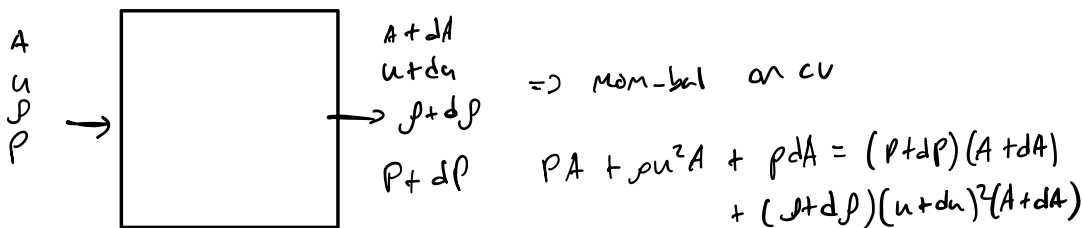 A
u
ρ
P
A + dA
u + du
ρ + dρ
P + dP
=> mom-bal on cv
PA + ρu²A + pdA = (P+dp)(A+dA)
+ (ρ+dρ)(u+du)²(A+dA)